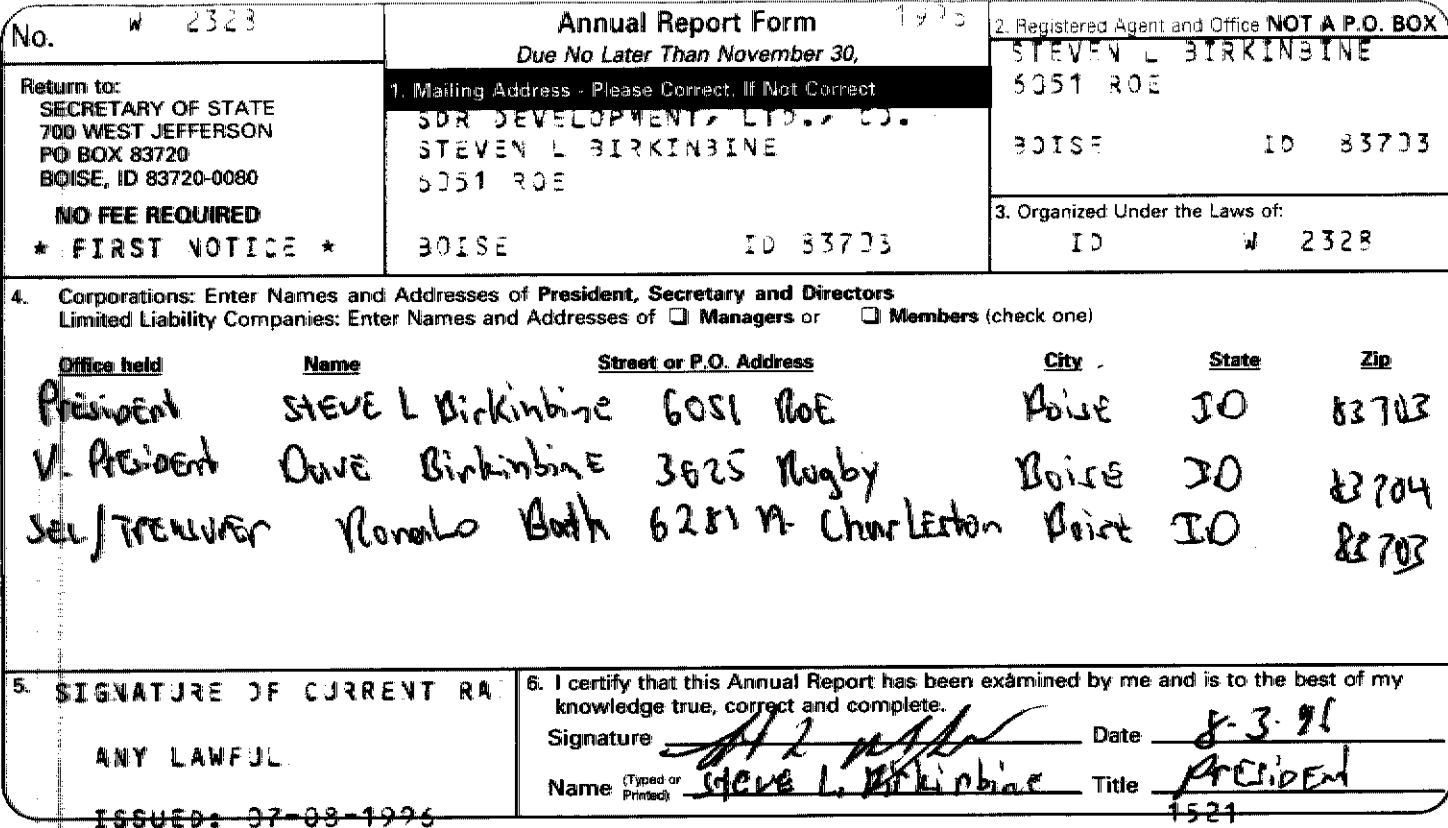 No. W 2328
Annual Report Form
Due No Later Than November 30,
Return to:
SECRETARY OF STATE
700 WEST JEFFERSON
PO BOX 83720
BOISE, ID 83720-0080
NO FEE REQUIRED
* FIRST NOTICE *
1. Mailing Address - Please Correct, If Not Correct
SDR DEVELOPMENT, LTD., CO.
STEVEN L BIRKINBINE
6051 ROE
BOISE ID 83703
2. Registered Agent and Office NOT A P.O. BOX
STEVEN L BIRKINBINE
6051 ROE
BOISE ID 83703
3. Organized Under the Laws of:
ID W 2328
4. Corporations: Enter Names and Addresses of President, Secretary and Directors
Limited Liability Companies: Enter Names and Addresses of ❑ Managers or ❑ Members (check one)
Office held Name Street or P.O. Address City State Zip
President STEVE L Birkinbine 6051 ROE Boise ID 83703
V. President Dave Birkinbine 3625 Rugby Boise ID 83704
Sec/Treasurer Ronald Bath 6281 N. Charleston Boise ID 83703
5. SIGNATURE OF CURRENT RA
ANY LAWFUL
ISSUED: 07-08-1996
6. I certify that this Annual Report has been examined by me and is to the best of my
knowledge true, correct and complete.
Signature Date
Name (Typed or Printed) Steve L. Birkinbine Title President
1521